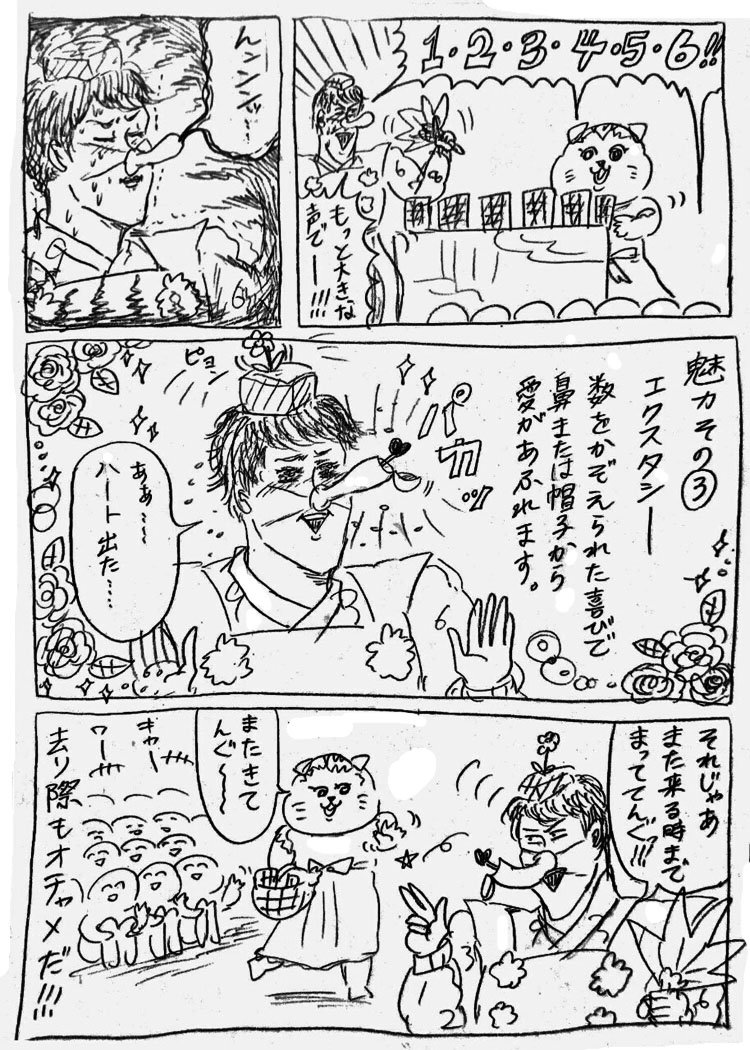 1・2・3・4・5・6!!
もっと大きな
声でー!!!
んンンンッ…
魅力その③
エクスタシー
数をかぞえられた喜びで
鼻または帽子から
愛があふれます。
パカッ
ピョン
ああ〜〜
ハート出た……
それじゃあ
また来る時まで
まっててんぐ!!!
またきて
んぐ〜〜
キャー
ワー
去り際もオチャメだ!!!
6
8
6
6
3
2